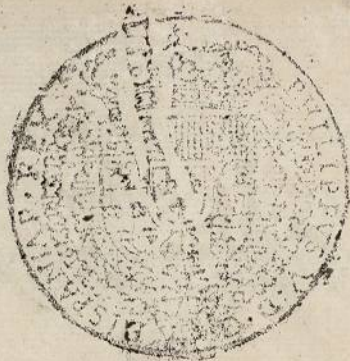 PHILIPPVS·V·D·G
HISPANIAR·REX